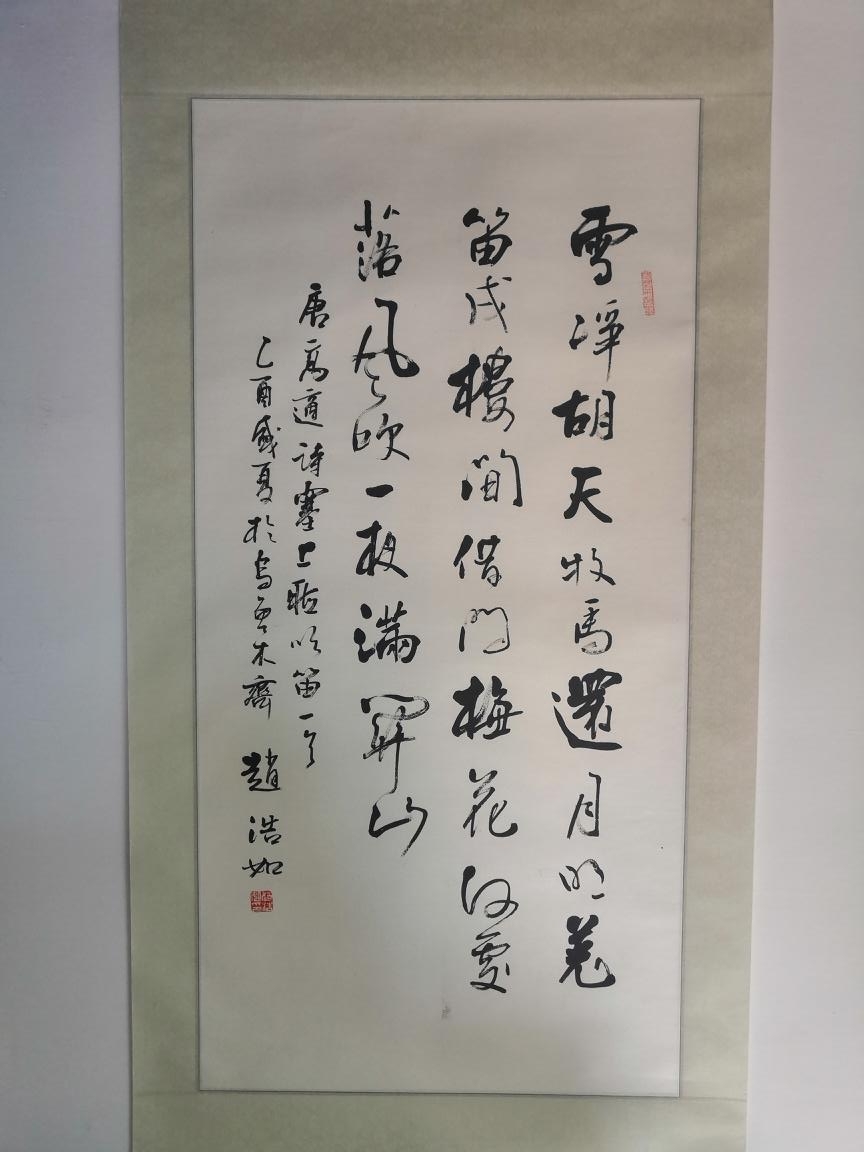 雪淨胡天牧馬還月明羌
笛戍樓間借門梅花何處
落風吹一夜滿關山
唐高適詩塞上聽吹笛一首
乙酉盛夏於烏魯木齊 趙浩如